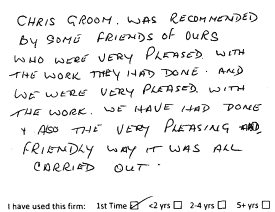 CHRIS GROOM. WAS RECOMMENDED
BY SOME FRIENDS OF OURS
WHO WERE VERY PLEASED WITH
THE WORK THEY HAD DONE. AND
WE WERE VERY PLEASED WITH
THE WORK. WE HAVE HAD DONE
& ALSO THE VERY PLEASING
FRIENDLY WAY IT WAS ALL
CARRIED OUT.
I have used this firm: 1st Time ☑ <2 yrs ☐ 2-4 yrs ☐ 5+ yrs ☐